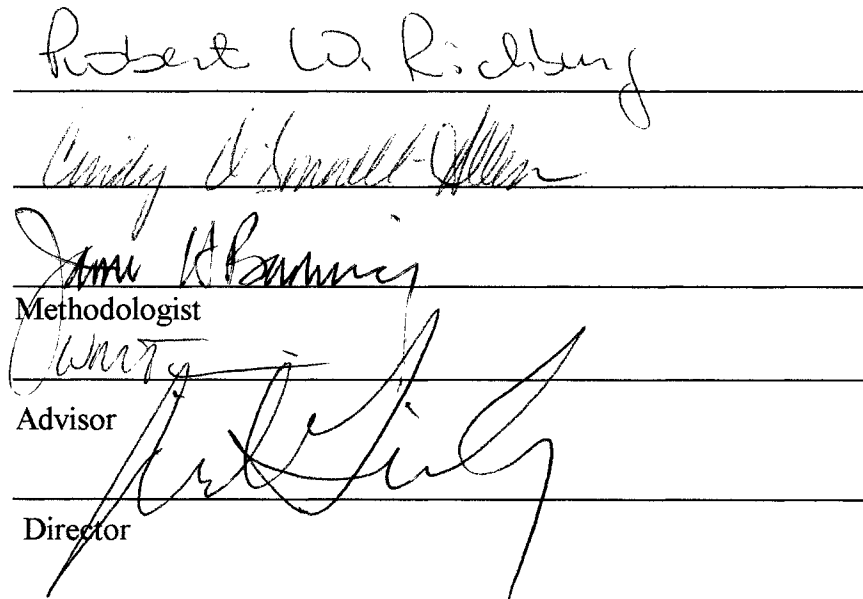 Robert W. Richburg
Cindy O'Donnell-Allen
James H. Banning
Methodologist
Advisor
Director